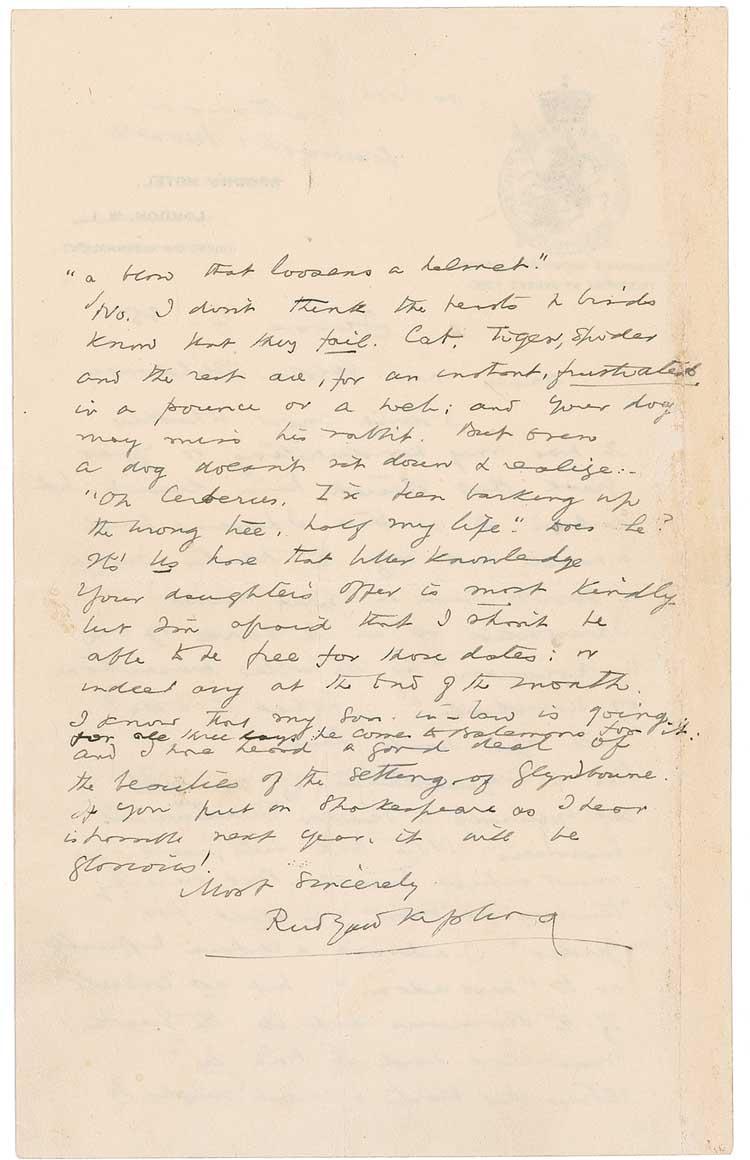 "a blow that loosens a helmet."
No. I don't think the beasts & birds
know that they fail. Cat, Tiger, Spider
and the rest are, for an instant, frustrated
in a pounce or a web; and your dog
may miss his rabbit. But even
a dog doesn't sit down & realize:-
"Oh Cerberus, I've been barking up
the wrong tee, half my life". Does he?
No! Us have that bitter knowledge
Your daughter's offer is most kindly
but I'm afraid that I shan't be
able to be free for those dates: or
indeed any at the end of the month.
I know that my son-in-law is going
for all three days: he comes to Batemans for it:
and I have heard a good deal of
the beauties of the setting of Glyndbourne.
If you put on Shakespeare as I hear
is possible next year, it will be
glorious!
Most sincerely
Rudyard Kipling
BROWN'S HOTEL,
LONDON, W. 1.